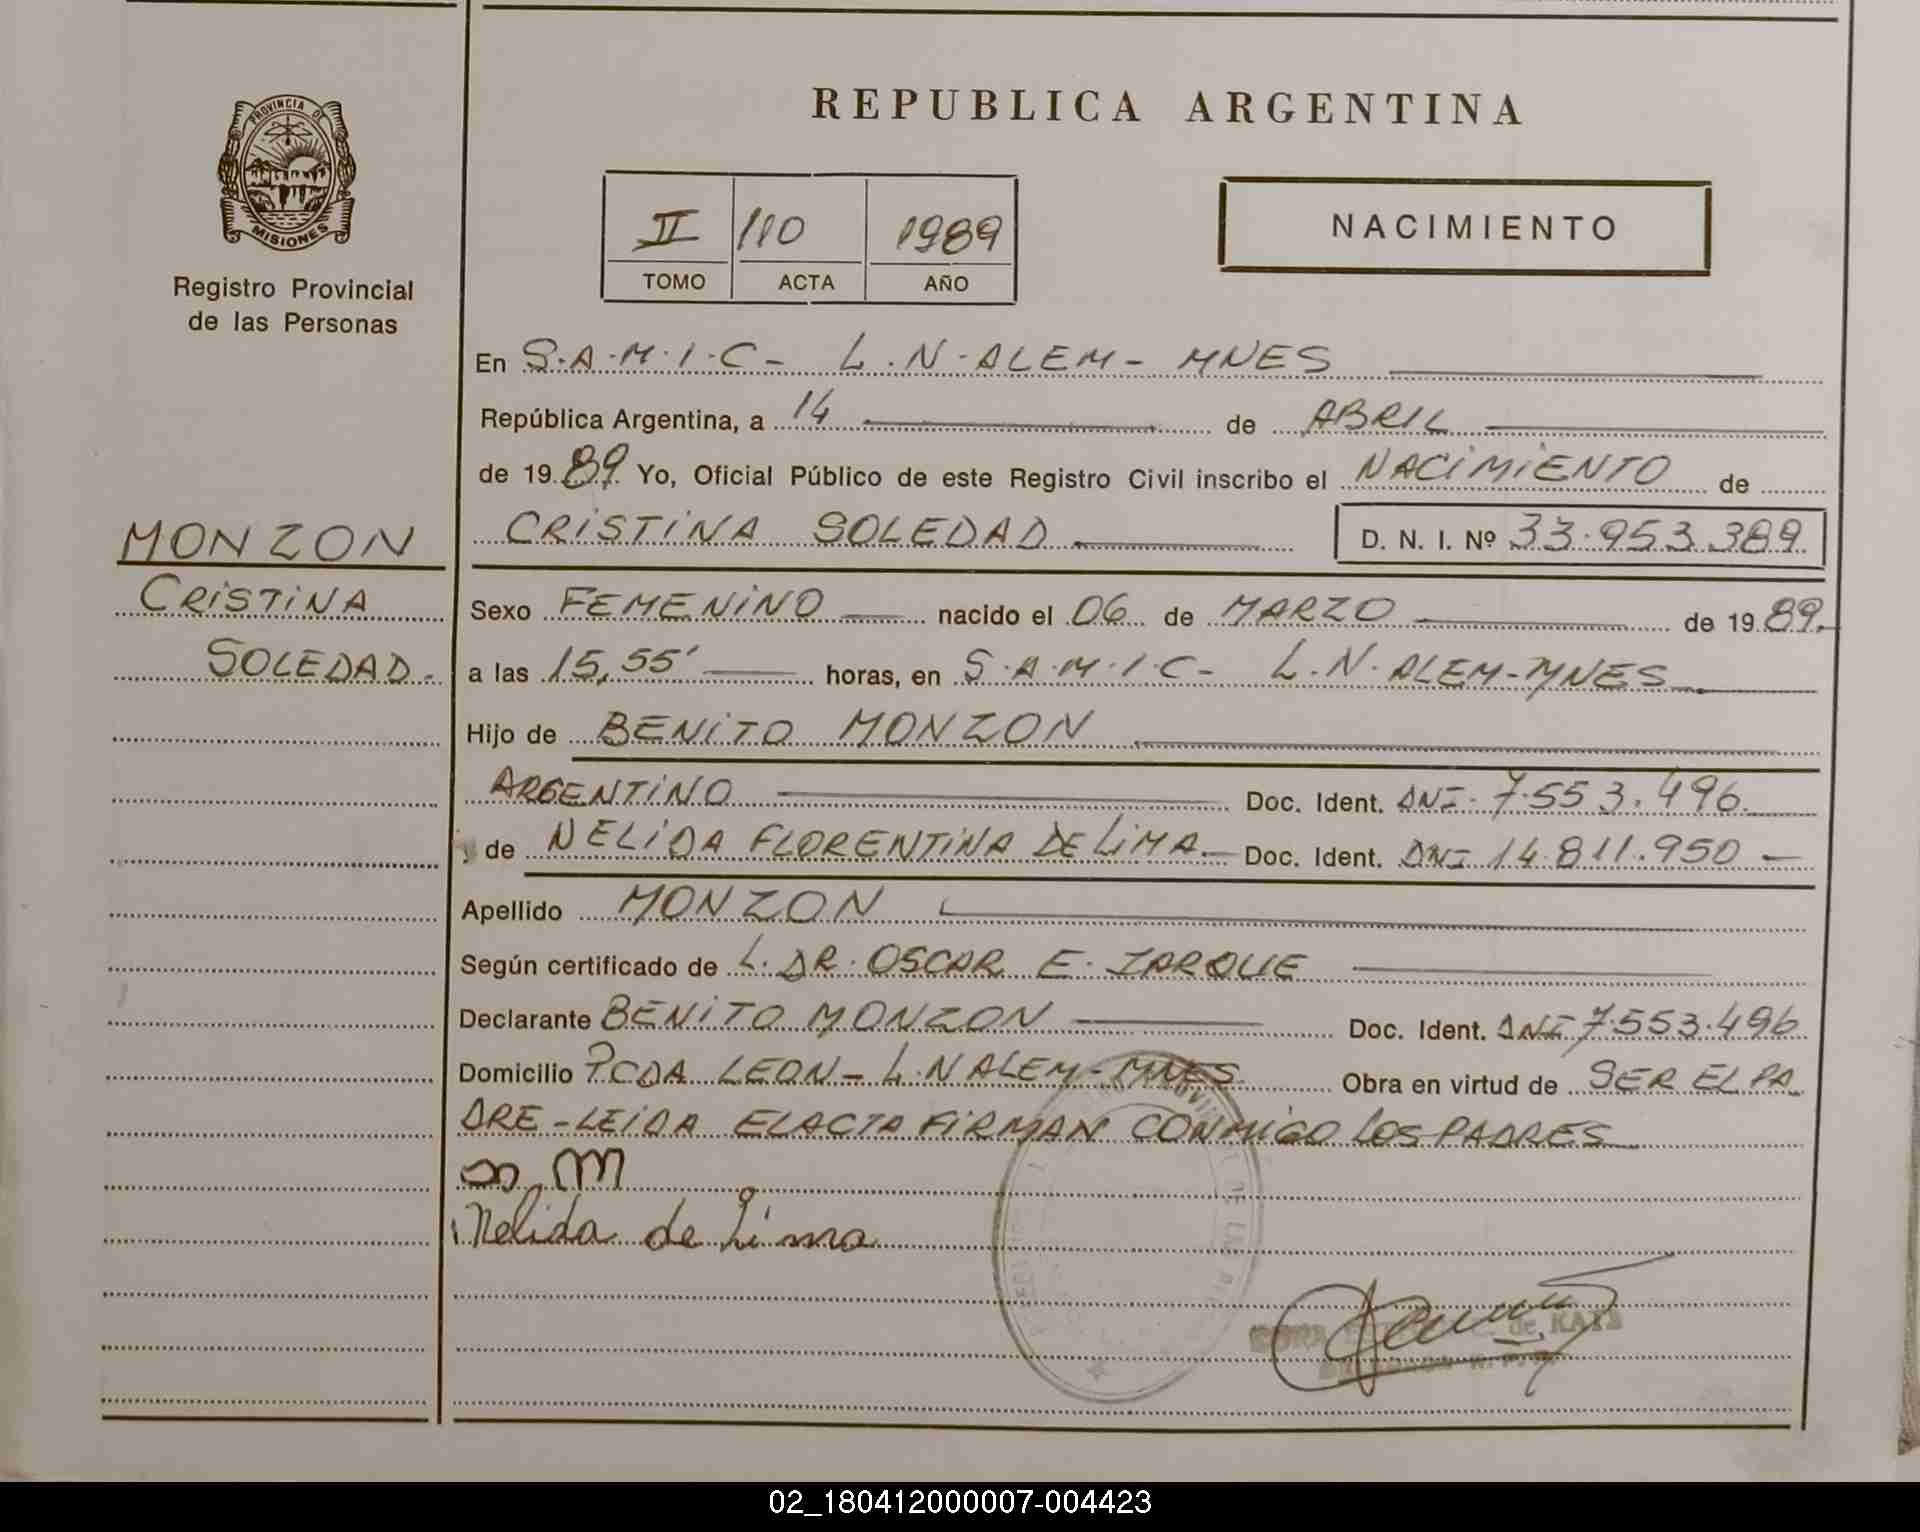 REPUBLICA ARGENTINA
PROVINCIA DE
MISIONES
Registro Provincial
de las Personas
II 110 1989
TOMO ACTA AÑO
NACIMIENTO
En S.A.M.I.C- L.N.ALEM- MNES
República Argentina, a 14 de ABRIL
de 1989 Yo, Oficial Público de este Registro Civil inscribo el NACIMIENTO de
CRISTINA SOLEDAD D. N. I. Nº 33.953.389
MONZON
CRISTINA
SOLEDAD.
Sexo FEMENINO nacido el 06 de MARZO de 1989.
a las 15,55' horas, en S.A.M.I.C- L.N.ALEM-MNES
Hijo de BENITO MONZON
ARGENTINO Doc. Ident. DNI. 7.553.496
y de NELIDA FLORENTINA DE LIMA.- Doc. Ident. DNI 14.811.950 -
Apellido MONZON
Según certificado de L. DR. OSCAR E.
Declarante BENITO MONZON Doc. Ident. DNI 7.553.496
Domicilio PCDA LEON- L.N ALEM-MNES Obra en virtud de SER EL PA
DRE-LEIDA EL ACTA FIRMAN CONMIGO LOS PADRES
Nelida de Lima
de KATZ
02_180412000007-004423